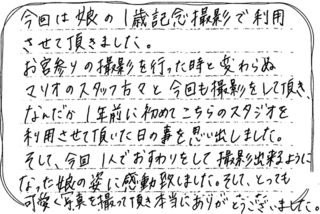 今回は娘の1歳記念撮影で利用
させて頂きました。
お宮参りの撮影を行った時と変わらぬ
マリオのスタッフ方々と今回も撮影をして頂き、
なんだか1年前に初めてこちらのスタジオを
利用させて頂いた日の事を思い出しました。
そして、今回1人でおすわりをして撮影出来るように
なった娘の姿に感動致しました。そして、とっても
可愛く写真を撮って頂き本当にありがとうございました。